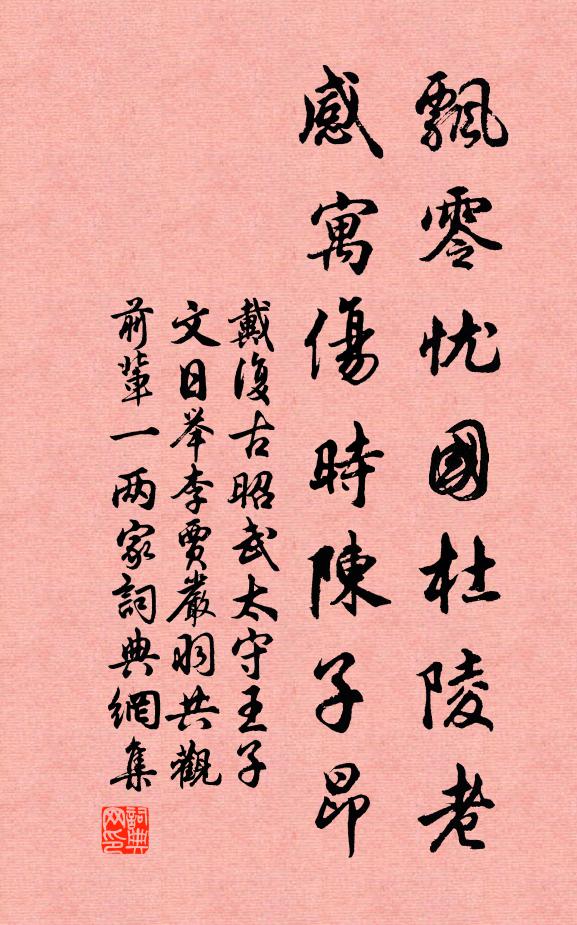 飄零憂國杜陵老
感寓傷時陳子昂
戴復古昭武太守王子
文日举李賈嚴羽共觀
前輩一两家詞典網集
詞典网印